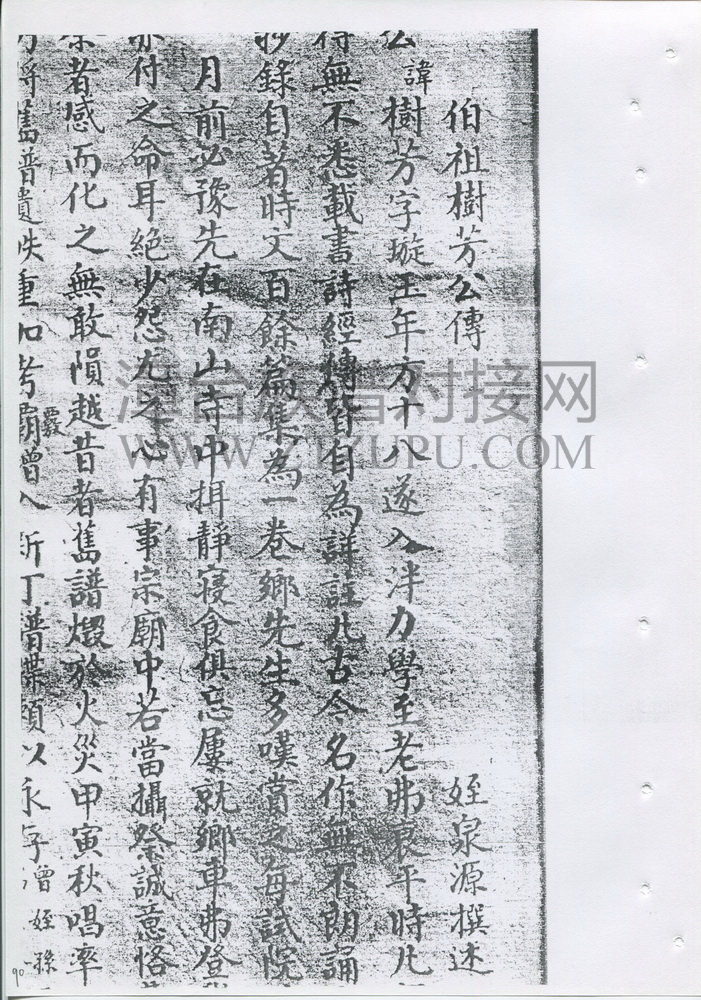 伯祖樹芳公傳 姪泉源撰述
公諱樹芳字璇玉年方十八遂入泮力學至老弗衰平時凡
無不悉載書詩經傳皆自為詳註凡古今名作無不朗誦
抄錄自著時文百餘篇集為一卷鄉先生多嘆賞之每試院
月前必豫先在南山寺中揖靜寢食俱忘屢就鄉車弗登
亦付之命耳絕少怨尤之心有事宗廟中若當攝祭誠意恪
者感而化之無敢隕越昔者舊譜燬於火災甲寅秋唱率
將舊譜遺佚重加考覈增入新丁譜牒頼以永存 姪孫
漳台族譜對接網
WWW.ZTZUPU.COM
90